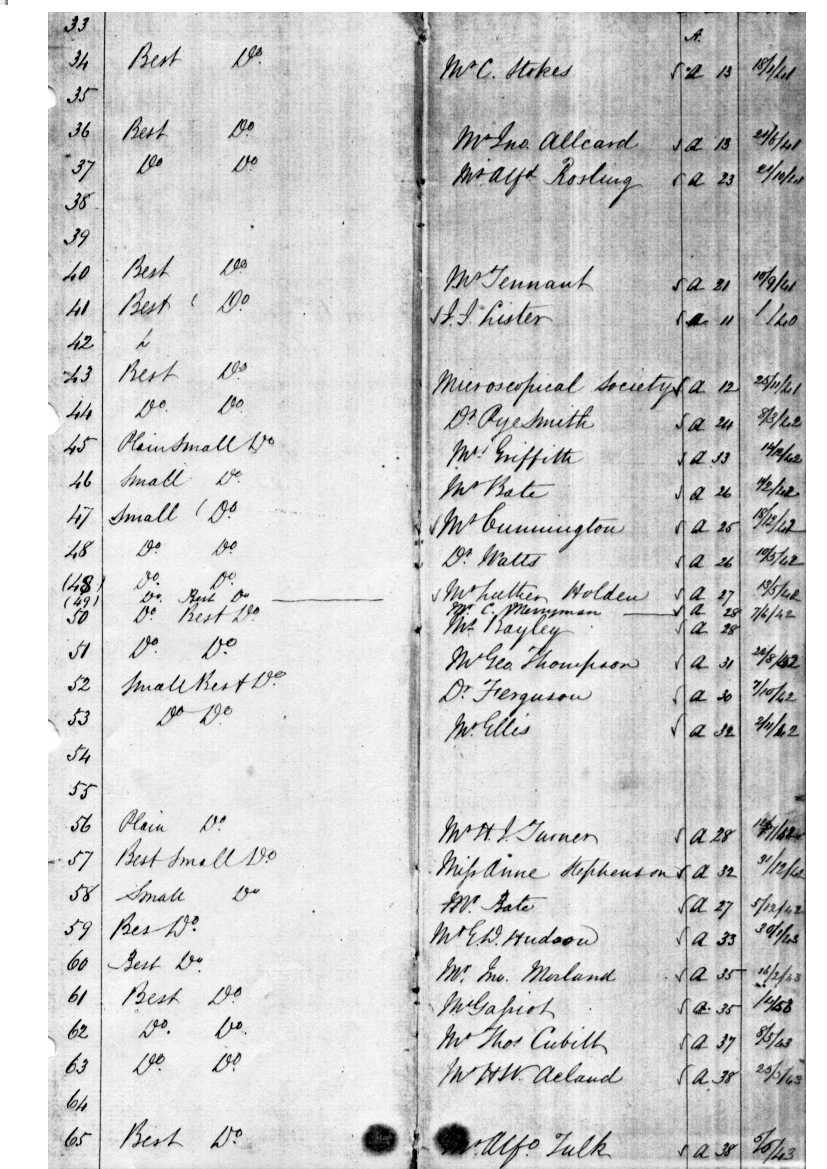 33 A.
34 Best Do. Mr C. Stokes √ a 13 18/2/41
35
36 Best Do Mr Jno. Allcard √ a 13 24/6/41
37 Do Do Mr Alfd Rosling √ a 23
38
39
40 Best Do Mr Tennant √ a 21 10/9/41
41 Best ( Do √ J. J. Lister √ a 11 1/ /40
42
43 Best Do. Microscopical Society √ a 12 25/11/41
44 Do. Do. Dr Pye Smith √ a 24 8/3/42
45 Plain Small Do Mr Griffith √ a 33 14/12/42
46 Small Do. Mr Bate √ a 26 4/2/42
47 Small ( Do. √ Mr Cunnington √ a 25 18/12/42
48 Do Do Dr Watts √ a 26 10/3/42
(48) Do. Do. √ Mr Luther Holden √ a 27 13/5/42
(49) Do. Best Do Mr C. Merryman √ a 28 7/6/42
50 Do Best Do. Mr Bayley √ a 28
51 Do. Do. Mr Geo. Thompson √ a 31 20/8/42
52 Small Best Do Dr Ferguson √ a 30 7/10/42
53 Do Do Mr Ellis √ a 32 2/11/42
54
55
56 Plain Do. Mr H. J. Turner √ a 28
57 Best Small Do Miss Anne Stephenson √ a 32 31/12/42
58 Small Do Mr. Bate √ a 27 5/12/42
59 Bes Do. Mr E D. Hudson √ a 33 30/1/43
60 Best Do. Mr. Jno. Morland √ a 35 16/2/43
61 Best Do. Mr Gassiot √ a 35
62 Do. Do. Mr Thos Cubitt √ a 37 8/3/43
63 Do. Do. Mr H W. Acland √ a 38 25/3/43
64
65 Best Do. Mr Alfd Tulk √ a 38